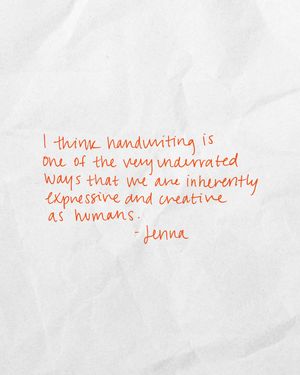 I think handwriting is
one of the very underrated
ways that we are inherently
expressive and creative
as humans.
- Jenna